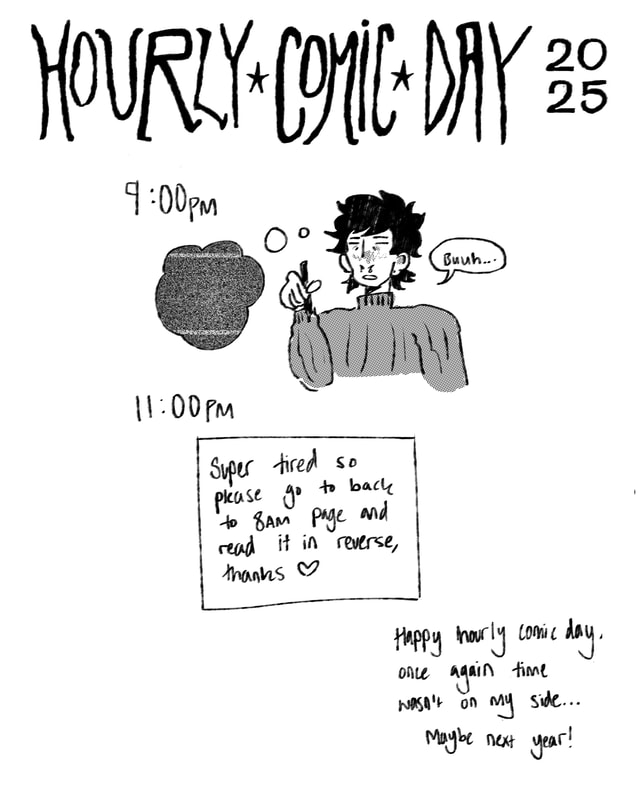 HOURLY★COMIC★DAY 20
25
9:00PM
Buuh...
11:00PM
Super tired so
please go to back
to 8AM page and
read it in reverse,
thanks ♡
Happy hourly comic day.
once again time
wasn't on my side...
Maybe next year!